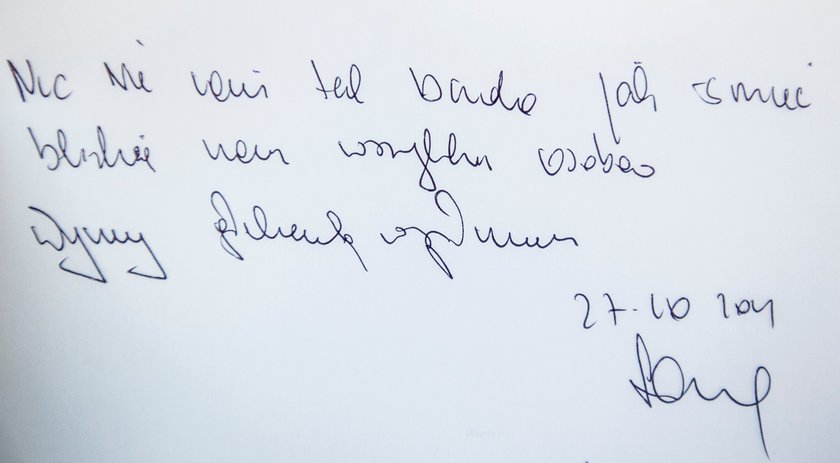 Nic nie rani tak bardzo jak śmierć
bliskiej nam wszystkim osoby
Wyrazy współczucia
27.10 2011